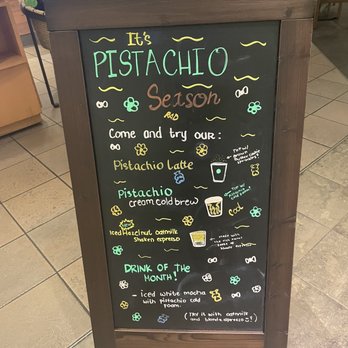 It's
PISTACHIO
Seison
Come and try our:
Pistachio Latte
Pistachio
cream cold brew
Cool
Iced Hazelnut oatmilk
Shaken espresso
DRINK OF THE
MONTH!
- iced white mocha
with pistachio cold
foam.
(TRY it with oatmilk
and blonde espresso!)